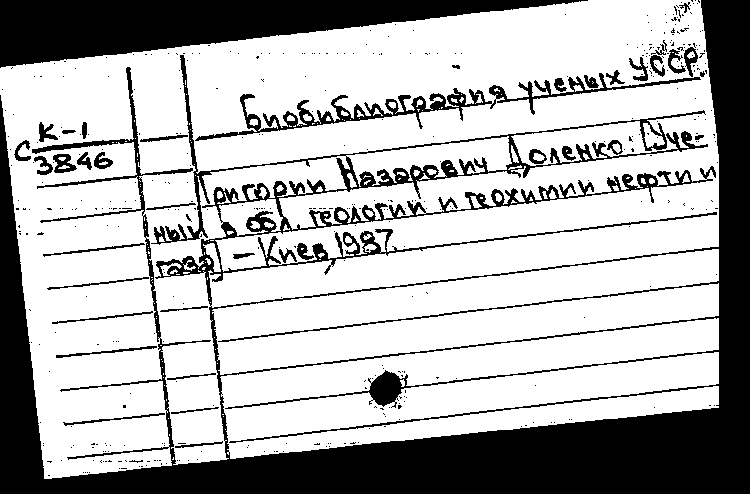 Биобиблиография ученых УССР.
С К-1
3846
Григорий Назарович Доленко: [Уче-
ный в обл. геологии и геохимии нефти и
газа]. – Киев, 1987.